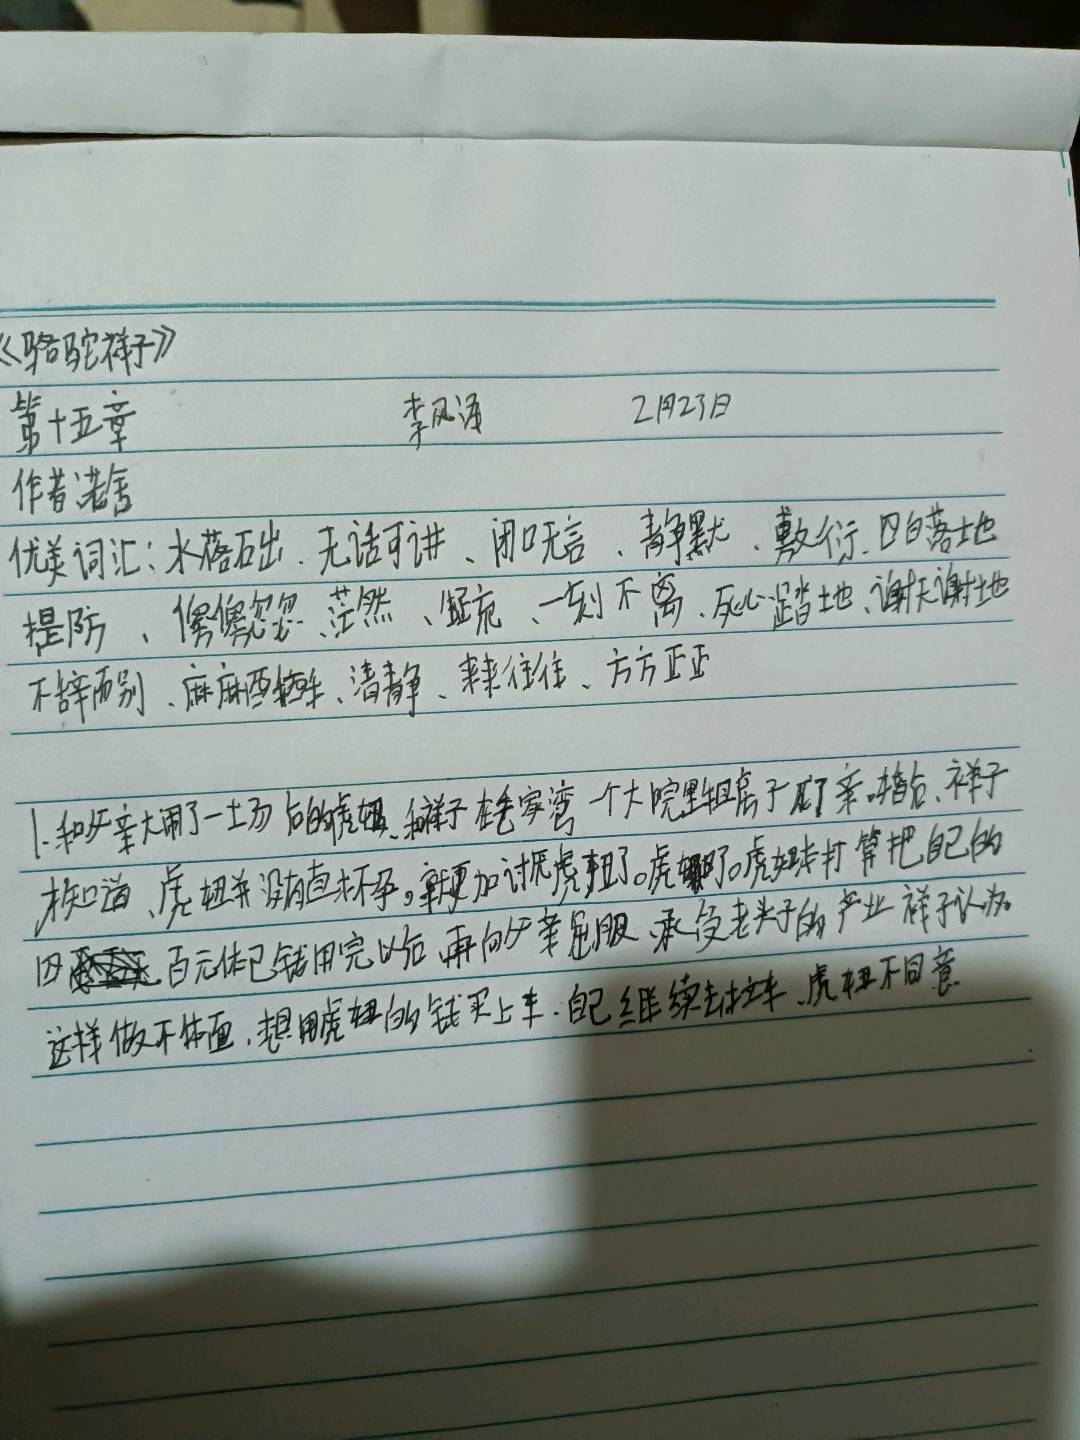 《骆驼祥子》
第十五章 李风 2月23日
作者:老舍
优美词汇:水落石出、无话可讲、闭口无言、静默、敷衍、四白落地
提防、傻傻忽忽、茫然、一刻不离、死心踏地、谢天谢地
不辞而别、麻麻、清静、来来往往、方方正正
1.和父亲大闹了一场后的虎妞、和祥子在毛家湾一个大院里租房子成了亲。婚后、祥子
才知道、虎妞并没有真怀孕。就更加讨厌虎妞了。虎妞打算把自己的
四百元体己钱用完以后,再向父亲屈服、承受老头子的产业祥子认为
这样做不体面,想用虎妞的钱买上车.自己继续去拉车、虎妞不同意